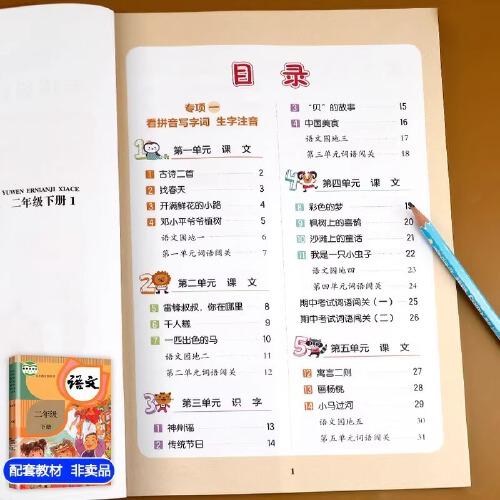 目录
专项一
看拼音写字词 生字注音
1 第一单元 课文
1 古诗二首 2
2 找春天 3
3 开满鲜花的小路 4
4 邓小平爷爷植树 5
语文园地一 6
第一单元词语闯关 7
2 第二单元 课文
5 雷锋叔叔，你在哪里 8
6 千人糕 9
7 一匹出色的马 10
语文园地二 11
第二单元词语闯关 12
3 第三单元 识字
1 神州谣 13
2 传统节日 14
3 “贝”的故事 15
4 中国美食 16
语文园地三 17
第三单元词语闯关 18
4 第四单元 课文
8 彩色的梦 19
9 枫树上的喜鹊 20
10 沙滩上的童话 21
11 我是一只小虫子 22
语文园地四 23
第四单元词语闯关 24
期中考试词语闯关（一） 25
期中考试词语闯关（二） 26
5 第五单元 课文
12 寓言二则 27
13 画杨桃 28
14 小马过河 29
语文园地五 30
第五单元词语闯关 31
1
YUWEN ERNIANJI XIACE
二年级下册 1
语文
二年级
下册
配套教材 非卖品